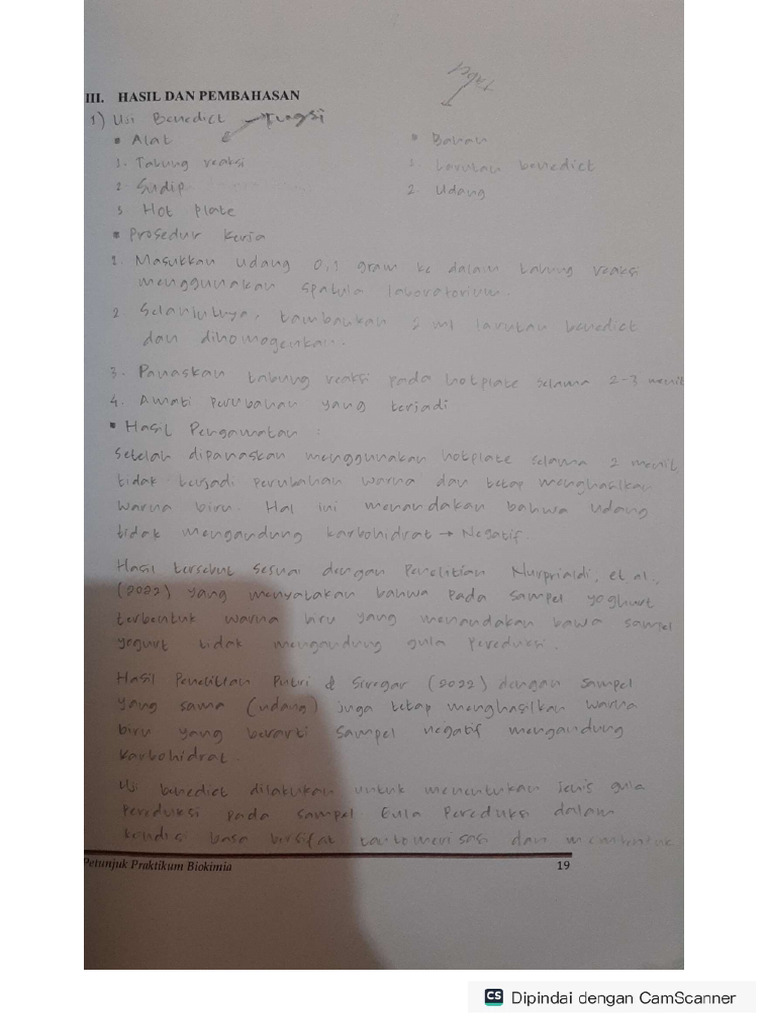 Tabel
III. HASIL DAN PEMBAHASAN
1) Uji Benedict → Fungsi
• Alat
• Bahan
1. Tabung reaksi
1. Larutan benedict
2. Sudip
2. Udang
3. Hot Plate
• Prosedur Kerja
1. Masukkan udang 0,1 gram ke dalam tabung reaksi
menggunakan spatula laboratorium.
2. Selanjutnya, tambahkan 2 ml larutan benedict
dan dihomogenkan.
3. Panaskan tabung reaksi pada hotplate selama 2-3 menit
4. Amati perubahan yang terjadi
• Hasil Pengamatan :
Setelah dipanaskan menggunakan hotplate selama 2 menit,
tidak terjadi perubahan warna dan tetap menghasilkan
warna biru. Hal ini menandakan bahwa udang
tidak mengandung karbohidrat → Negatif.
Hasil tersebut sesuai dengan Penelitian Nurprialdi, et al.,
(2022) yang menyatakan bahwa pada sampel yoghurt
terbentuk warna biru yang menandakan bawa sampel
yogurt tidak mengandung gula Pereduksi.
Hasil Penelitian Putri & Siregar (2022) dengan sampel
yang sama (udang) juga tetap menghasilkan warna
biru yang berarti sampel negatif mengandung
karbohidrat.
Uji benedict dilakukan untuk menentukan jenis gula
Pereduksi pada sampel. Gula Pereduksi dalam
kondisi basa bersifat tautomerisasi dan membentuk
Petunjuk Praktikum Biokimia
19
CS Dipindai dengan CamScanner